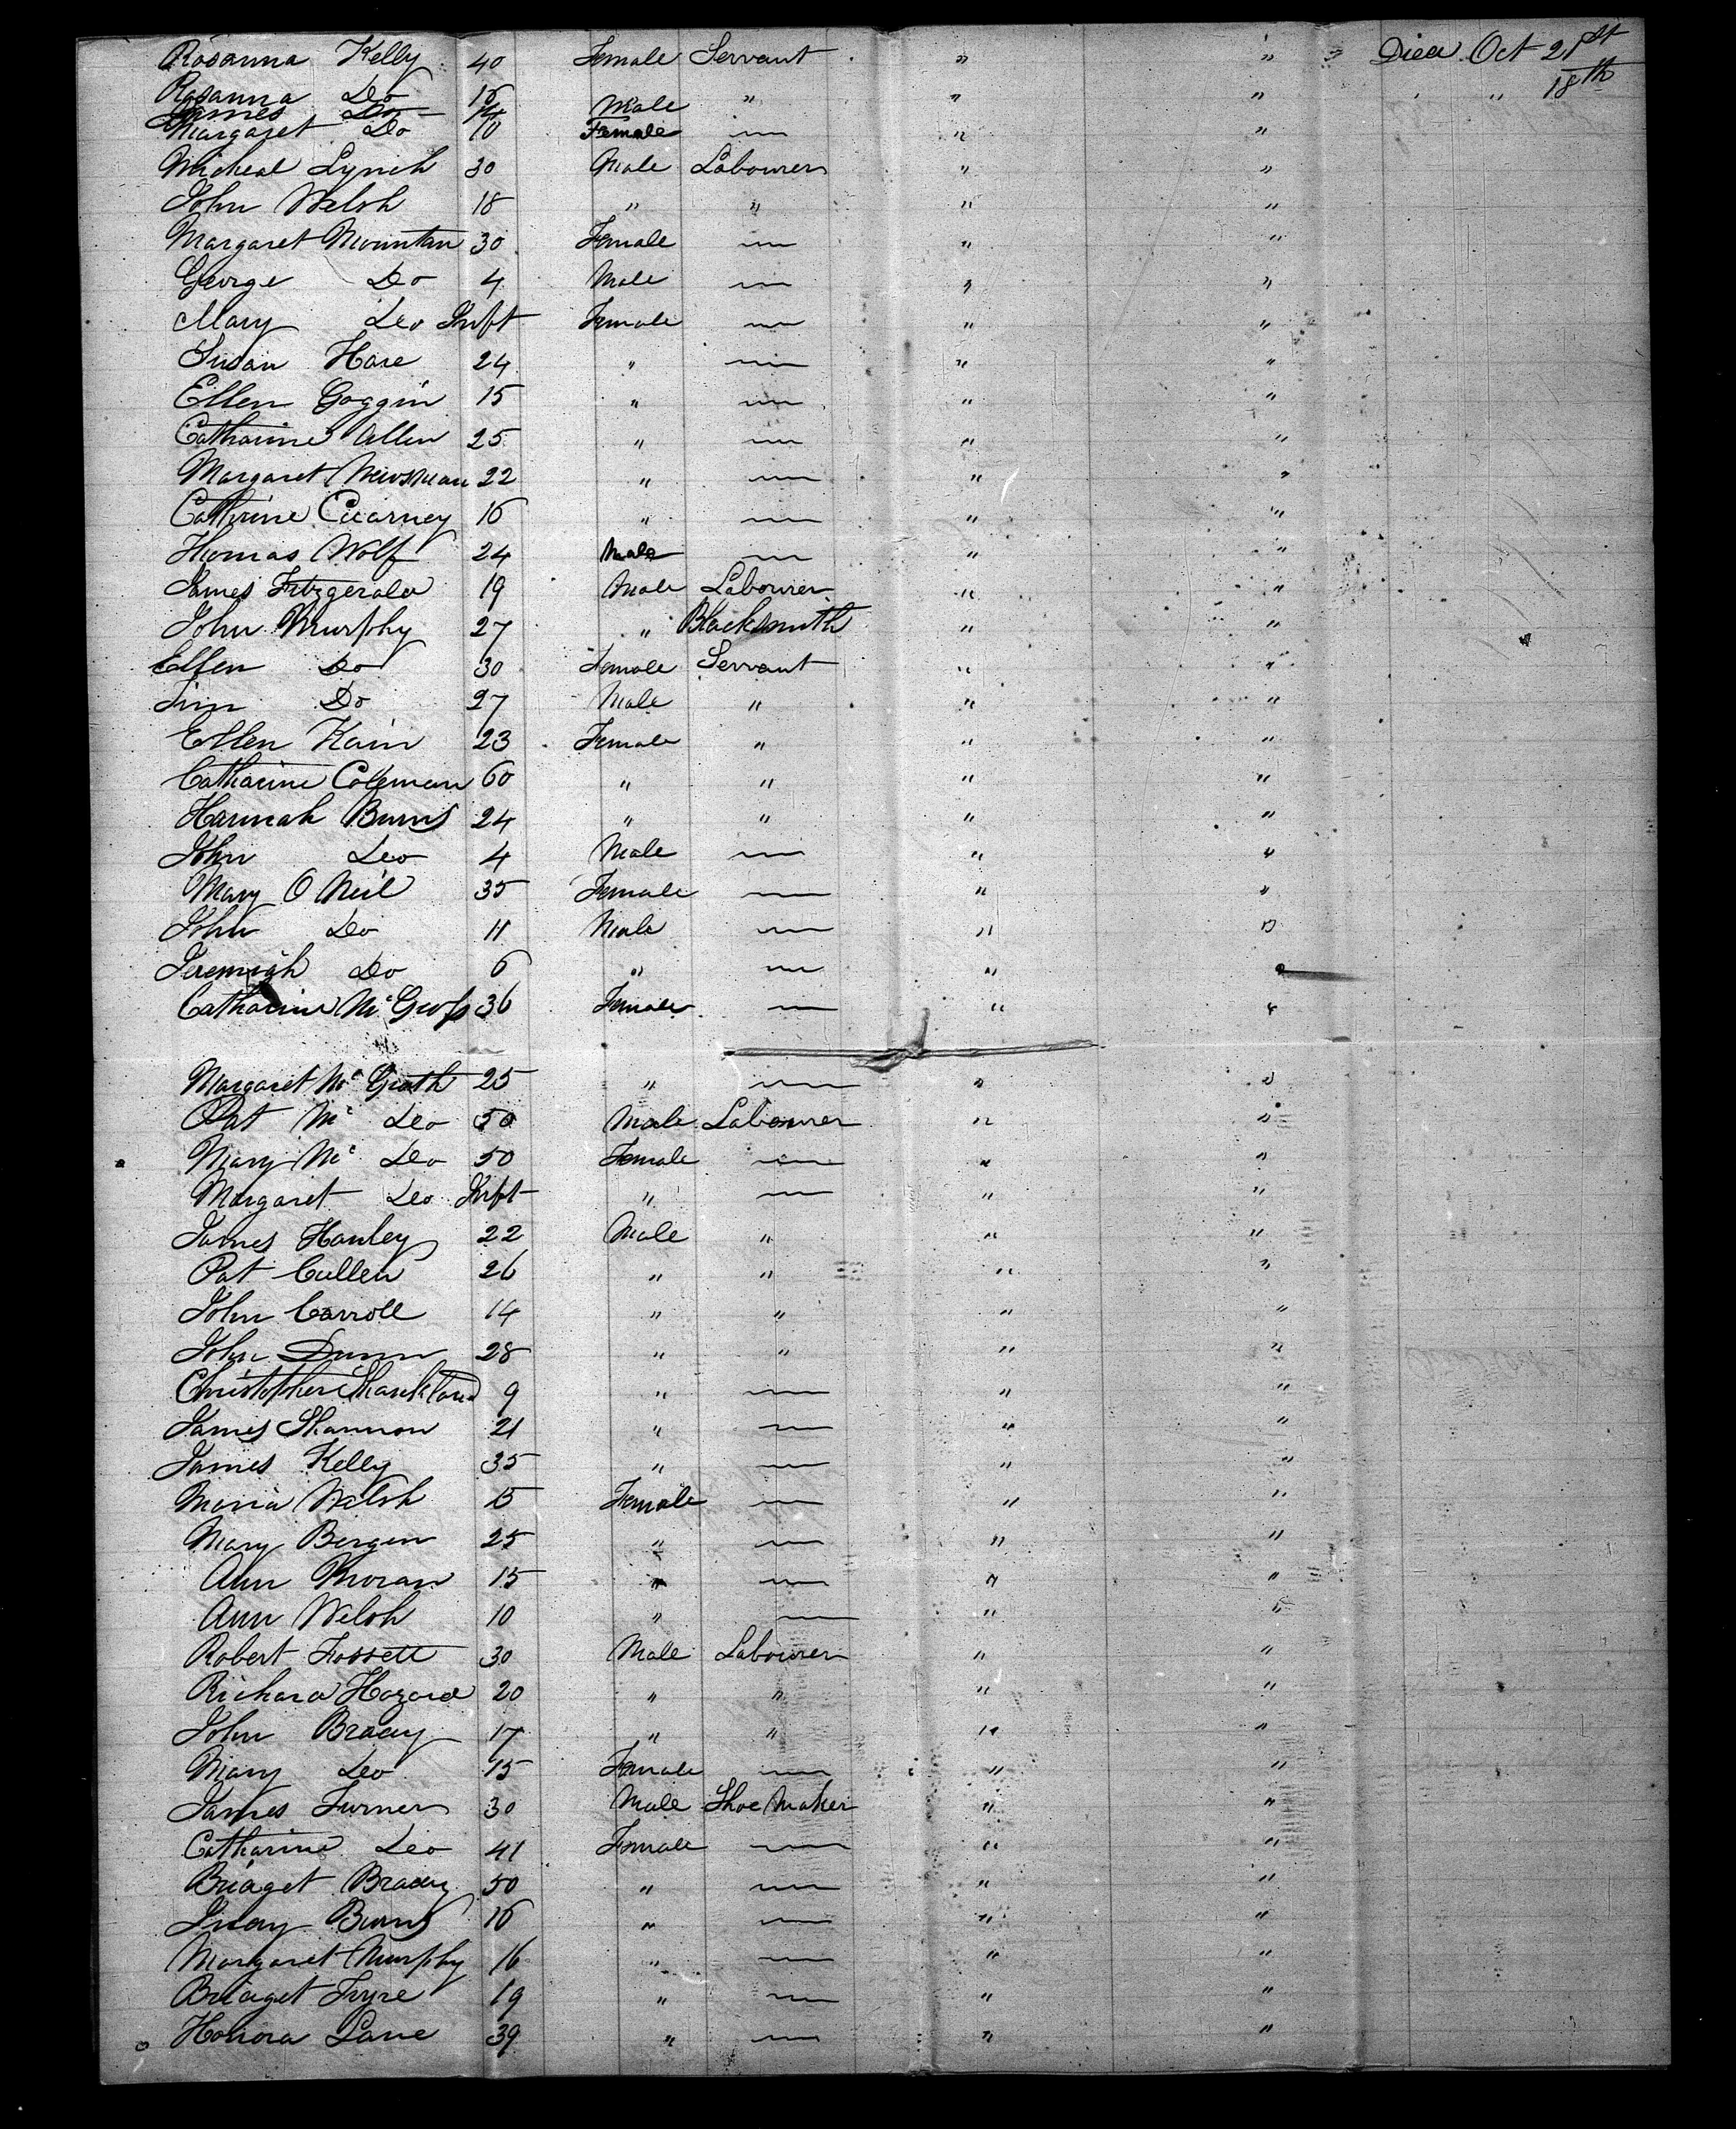 Rosanna Kelly 40 Female Servant " " Died Oct 21st
Rosanna Do 16 " " " " " 18th
James Do 14 Male
Margaret Do 10 Female — " "
Micheal Lynch 30 Male Labourer " "
John Welsh 18 " " " "
Margaret Mountan 30 Female — " "
George Do 4 Male — " "
Mary Do Inft Female — " "
Susan Hare 24 " — " "
Ellen Goggin 15 " — " "
Catharine Allen 25 " — " "
Margaret Newsman 22 " — " "
Cathrine Ciearney 16 " — " "
Thomas Wolf 24 Male — " "
James Fitzgerald 19 Male Labourer " "
John Murphy 27 " Blacksmith " "
Ellen Do 30 Female Servant " "
Tim Do 27 Male " " "
Ellen Kain 23 Female " " "
Catharine Coleman 60 " " " "
Hannah Burns 24 " " " "
John Do 4 Male — " "
Mary O Neil 35 Female — " "
John Do 11 Male — " "
Jeremiah Do 6 " — " "
Catharine Mc 36 Female — " "
Margaret Mc Grath 25 " — " "
Pat Mc Do 50 Male Labourer " "
Mary Mc Do 50 Female — " "
Margaret Do Inft " — " "
James Hanley 22 Male " " "
Pat Cullen 26 " " " "
John Carroll 14 " " " "
John Dunn 28 " " " "
Christopher Shankland 9 " — " "
James Shannon 21 " — " "
James Kelly 35 " — " "
Maria Welsh 15 Female — " "
Mary Bergen 25 " — " "
Ann Moran 15 " — " "
Ann Welsh 10 " — " "
Robert Fossett 30 Male Labourer " "
Richard Hazard 20 " " " "
John Brady 17 " " " "
Mary Do 15 Female — " "
James Turner 30 Male Shoe Maker " "
Catharine Do 41 Female — " "
Bridget Brady 50 " — " "
Burns 16 " — " "
Margaret Murphy 16 " — " "
Bridget 19 " — " "
Honora Lane 39 " — " "